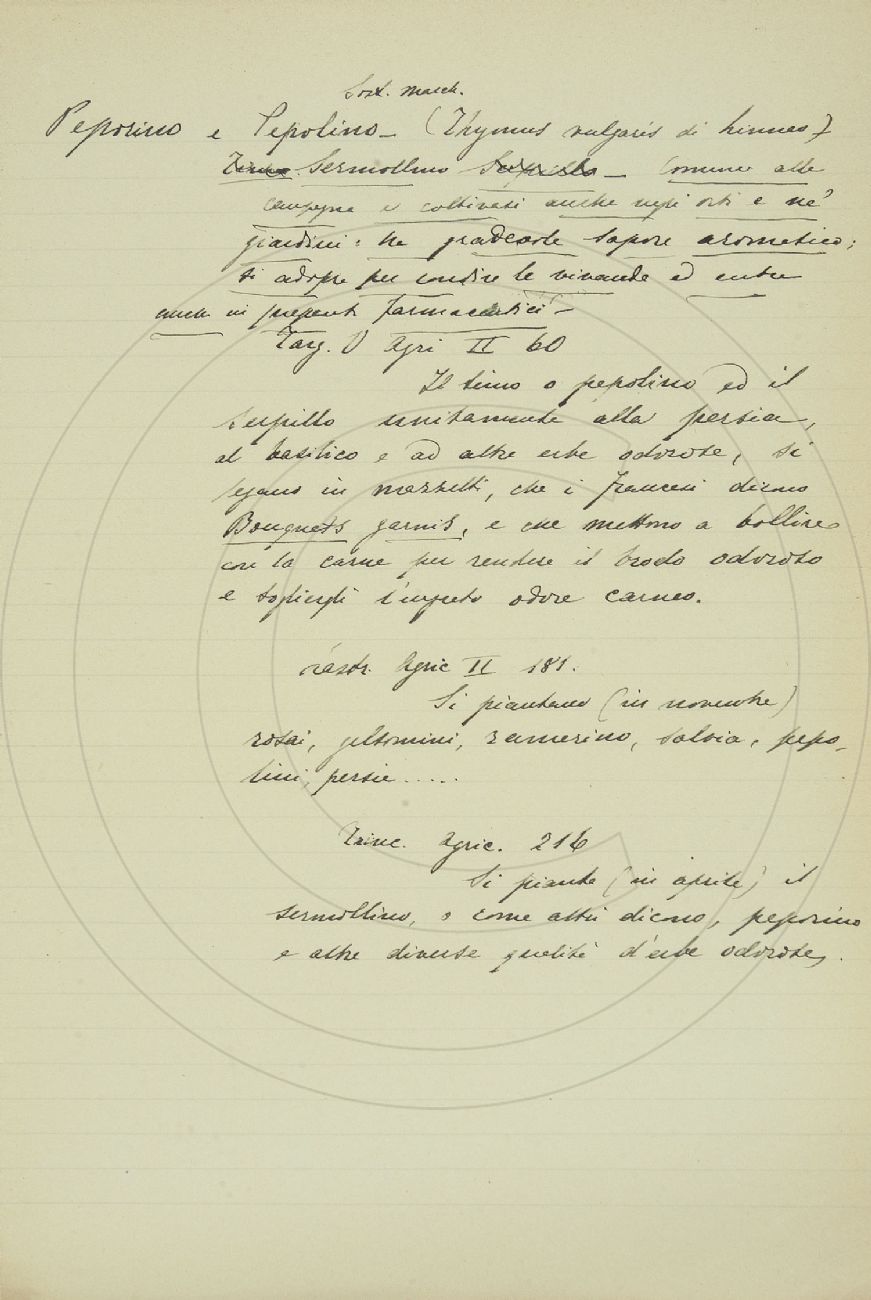 Sost. masch.
Peporino e Pepolino — (Thymus vulgaris di Linneo)
Timo Sermollino Serpillo — Comune alle
campagne e coltivasi anche negli orti e ne'
giardini: ha gradevole sapore aromatico;
si adopra per condire le vivande ed entra
anche in preparati farmaceutici —
Targ. V Agri II 60
Il timo o pepolino ed il
serpillo unitamente alla persia,
al basilico e ad altre erbe odorose, si
legano in mazzetti, che i Francesi dicono
Bouquets garnis, e che mettono a bollire
con la carne per rendere il brodo odoroso
e togliergli l'ingrato odore carneo.
Lastr. Agric II 181.
Si piantano (in novembre)
rosai, gelsomini, ramerino, salvia, pepo-
lini, persia.....
Trinc. Agric. 216
Si pianta (in aprile) il
sermollino, o come altri dicono, peporino
e altre diverse qualità d'erbe odorose.